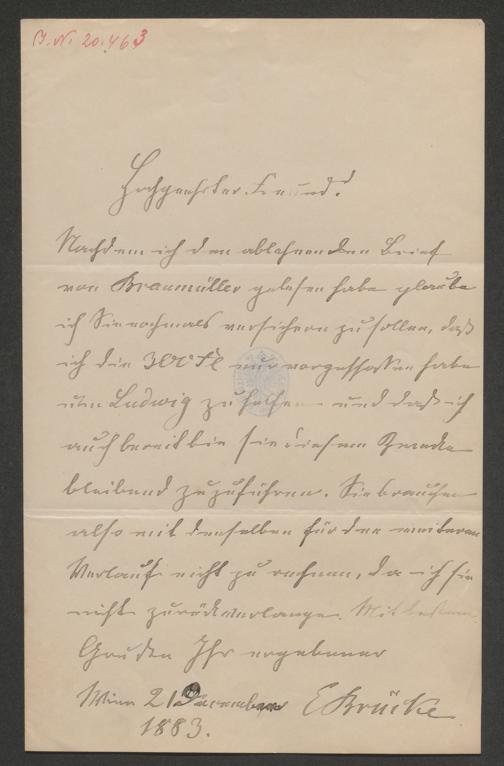 J. N. 20.463
Hochgeehrter Freund!
Nachdem ich den ablehnenden Brief
von Braumüller gelesen habe glaube
ich Sie nochmals versichern zu sollen, daß
ich die 300 Fl nur vorgeschossen habe
um Ludwig zu helfen und daß ich
auch bereit bin sie diesem Zwecke
bleibend zuzuführen. Sie brauchen
also mit denselben für den weiteren
Verlauf nicht zu rechnen, da ich sie
nicht zurückverlange. Mit besten
Grüßen Ihr ergebener
Wien 21 December E Brücke
1883.